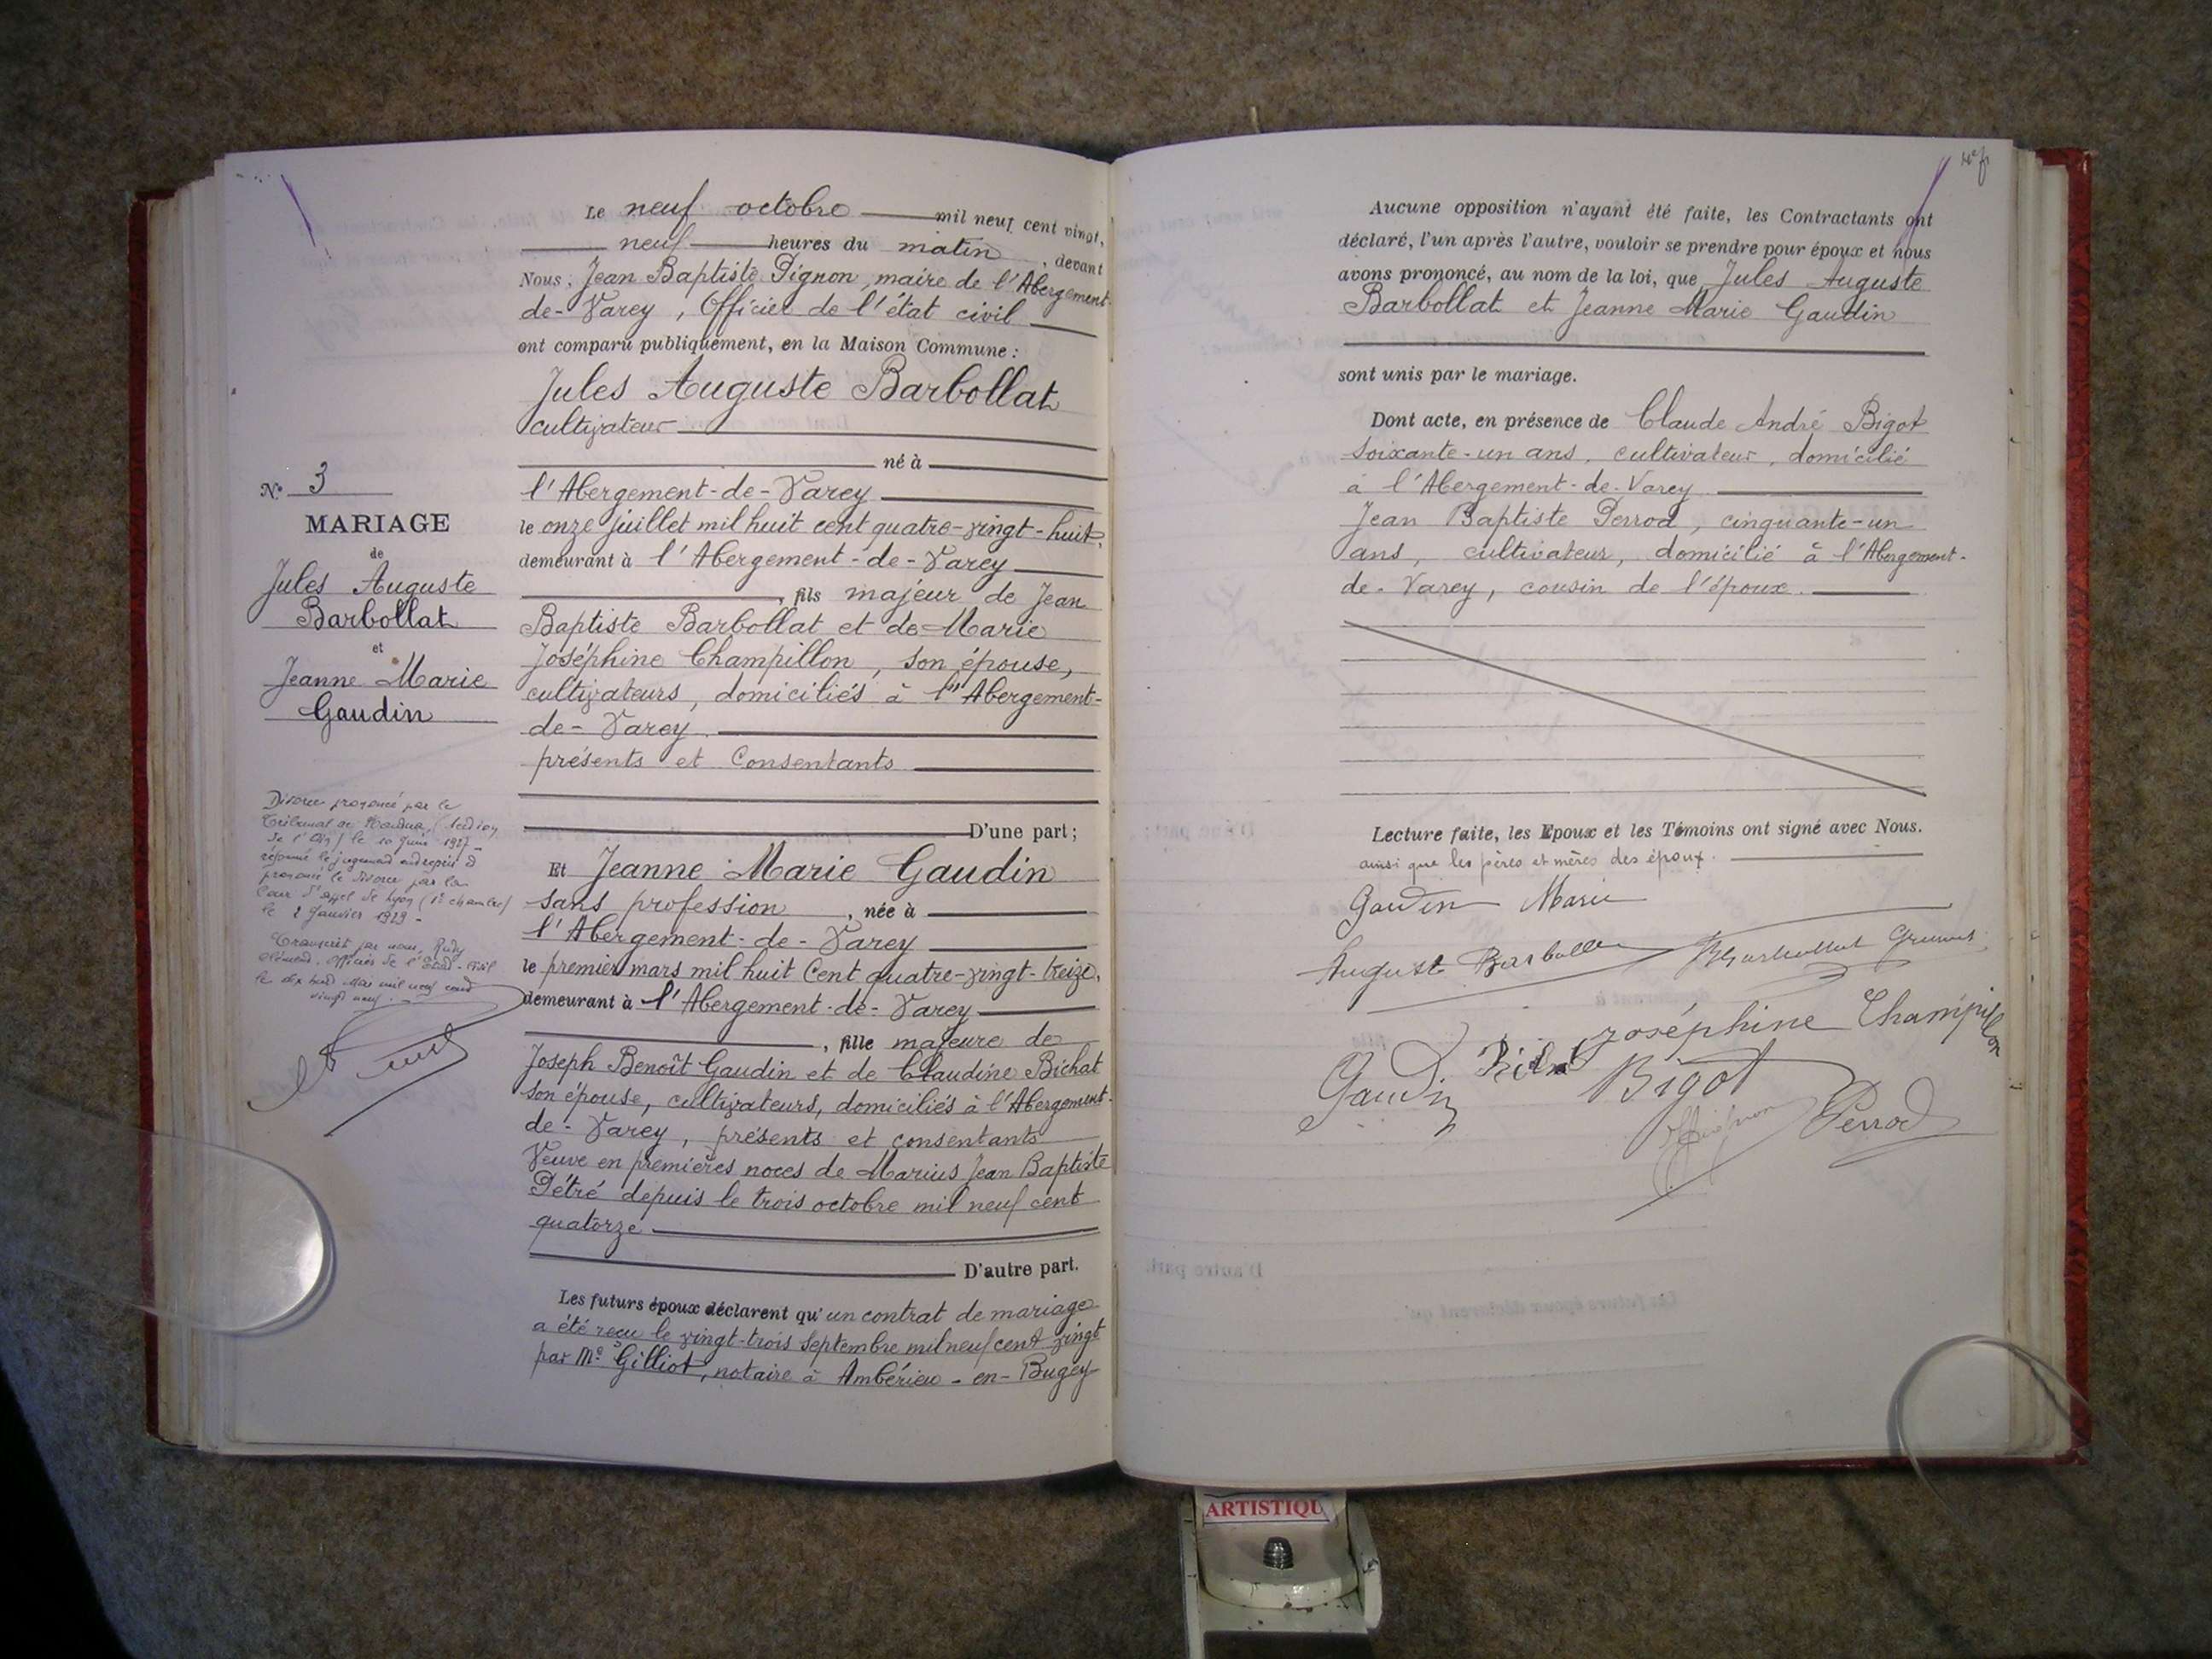 Le neuf octobre mil neuf cent vingt,
neuf heures du matin, devant
Nous, Jean Baptiste Pignon, maire de l'Abergement-
de-Varey, Officier de l'état civil
ont comparu publiquement, en la Maison Commune :
Jules Auguste Barbollat
cultivateur
né à
l'Abergement-de-Varey
le onze juillet mil huit cent quatre-vingt-huit,
demeurant à l'Abergement-de-Varey
, fils majeur de Jean
Baptiste Barbollat et de Marie
Joséphine Champillon, son épouse,
cultivateurs, domiciliés à l'Abergement-
de-Varey.
présents et consentants
D'une part ;
Et Jeanne Marie Gaudin
sans profession, née à
l'Abergement-de-Varey
le premier mars mil huit cent quatre-vingt-treize,
demeurant à l'Abergement-de-Varey
, fille majeure de
Joseph Benoît Gaudin et de Claudine Bichat
son épouse, cultivateurs, domiciliés à l'Abergement-
de-Varey, présents et consentants
Veuve en premières noces de Marius Jean Baptiste
Pétré depuis le trois octobre mil neuf cent
quatorze
D'autre part.
Les futurs époux déclarent qu'un contrat de mariage
a été reçu le vingt-trois septembre mil neuf cent vingt
par Me Gilliot, notaire à Ambérieu-en-Bugey
N° 3
MARIAGE
de
Jules Auguste
Barbollat
et
Jeanne Marie
Gaudin
Divorce prononcé par le
Tribunal de (section
de l'Ain) le 10 Juin 1927 -
réformé le jugement entrepris et
prononcé le divorce par la
Cour d'appel de Lyon (1e chambre)
le 2 Janvier 1929 -
Transcrit par nous, Rudy
Clément, officier de l'Etat-Civil
le dix huit Mai mil neuf cent
vingt neuf.
Aucune opposition n'ayant été faite, les Contractants ont
déclaré, l'un après l'autre, vouloir se prendre pour époux et nous
avons prononcé, au nom de la loi, que Jules Auguste
Barbollat et Jeanne Marie Gaudin
sont unis par le mariage.
Dont acte, en présence de Claude André Bigot
soixante-un ans, cultivateur, domicilié
à l'Abergement-de-Varey
Jean Baptiste Perrod, cinquante-un
ans, cultivateur, domicilié à l'Abergement-
de-Varey, cousin de l'époux.
Lecture faite, les Epoux et les Témoins ont signé avec Nous.
ainsi que les pères et mères des époux.
Gaudin Marie
August Barbollat
Joséphine Champillon
Gaudin
Bigot
Perrod
ARTISTIQU